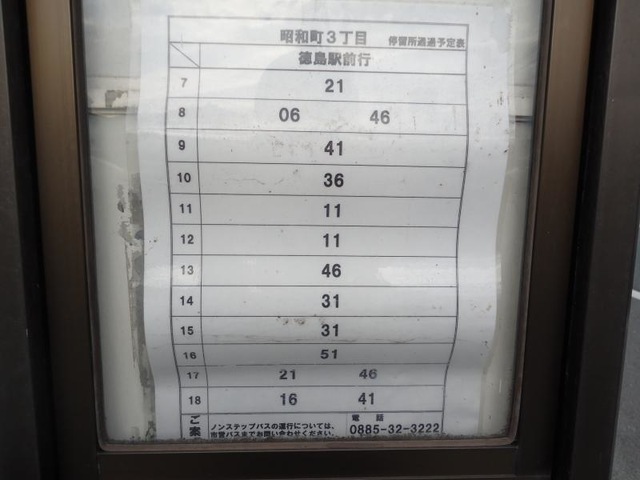 昭和町3丁目 停留所通過予定表
徳島駅前行
7 21
8 06 46
9 41
10 36
11 11
12 11
13 46
14 31
15 31
16 51
17 21 46
18 16 41
ご案
ノンステップバスの運行については、
市営バスまでお問い合わせください。
電話
0885-32-3222